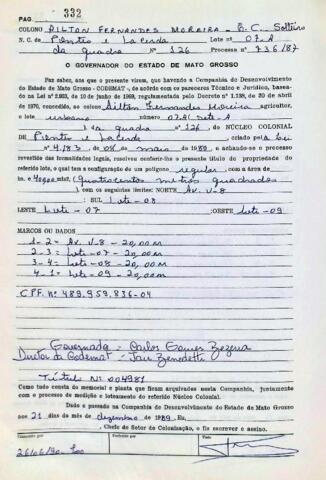 PAG. 332
COLONO AILTON FERNANDES MOREIRA - B.C. Solteiro
N. C. de Pontes e Lacerda Lote 07-A
da quadra Nº 126 Processo nº 736/87
O GOVERNADOR DO ESTADO DE MATO GROSSO
Faz saber, aos que o presente virem, que havendo a Companhia de Desenvolvimento
do Estado de Mato Grosso -CODEMAT-, de acôrdo com os pareceres Técnico e Jurídico, basea-
do na Lei nº 2.903, de 10 de Janeiro de 1969, regulamentada pelo Decreto nº 1.138, de 20 de abril
de 1970, concedido, ao colono Ailton Fernandes Moreira agricultor,
o lote urbano número 07-A
da quadra nº 126, do NÚCLEO COLONIAL
de Pontes e Lacerda, criado pela Lei
nº 4.183 de 04 de maio de 1980, e achando-se o processo
revestido das formalidades legais, resolveu conferir-lhe o presente título de propriedade do
referido lote, o qual tem a configuração de um polígono regular, com a área
de 400,00 mts2, (quatrocentos metros quadrados
) com os seguintes limites: NORTE Av. V-8
: SUL Lote-08
LESTE Lote-07 :OESTE Lote-09
MARCOS OU DADOS
1-2= Av. V-8 - 20,00m
2-3= Lote-07 - 20,00m
3-4= Lote-08 - 20,00m
4-1= Lote-09 - 20,00m
CPF. Nº 489.959.836-04
Governador - Carlos Gomes Bezerra
Diretor da Codemat - Jair Benedetti
Título Nº 004981
Como tudo consta do memorial e planta que ficaram arquivados nesta Companhia, juntamente
com o processo de medição e loteamento do referido Núcleo Colonial.
Dado e passado na Companhia de Desenvolvimento do Estado de Mato Grosso
aos 21 dias do mês de dezembro de 1989. Eu,
, Chefe do Setor de Colonização, o fiz escrever e assino.
Transcrito por Conferido por Visto
26/06/90